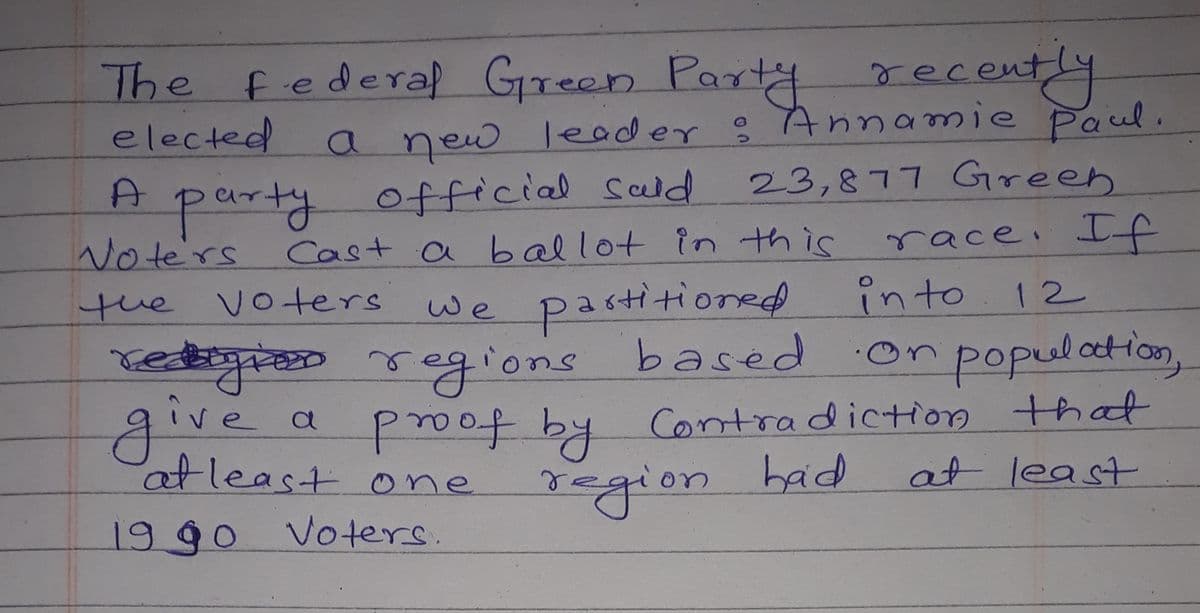 The federal Green Party recently
elected a new leader : Annamie Paul.
A party official said 23,877 Green
Voters Cast a ballot in this race. If
the voters we partitioned into 12
regions based on population,
give a proof by Contradiction that
atleast one region had at least
1990 Voters.